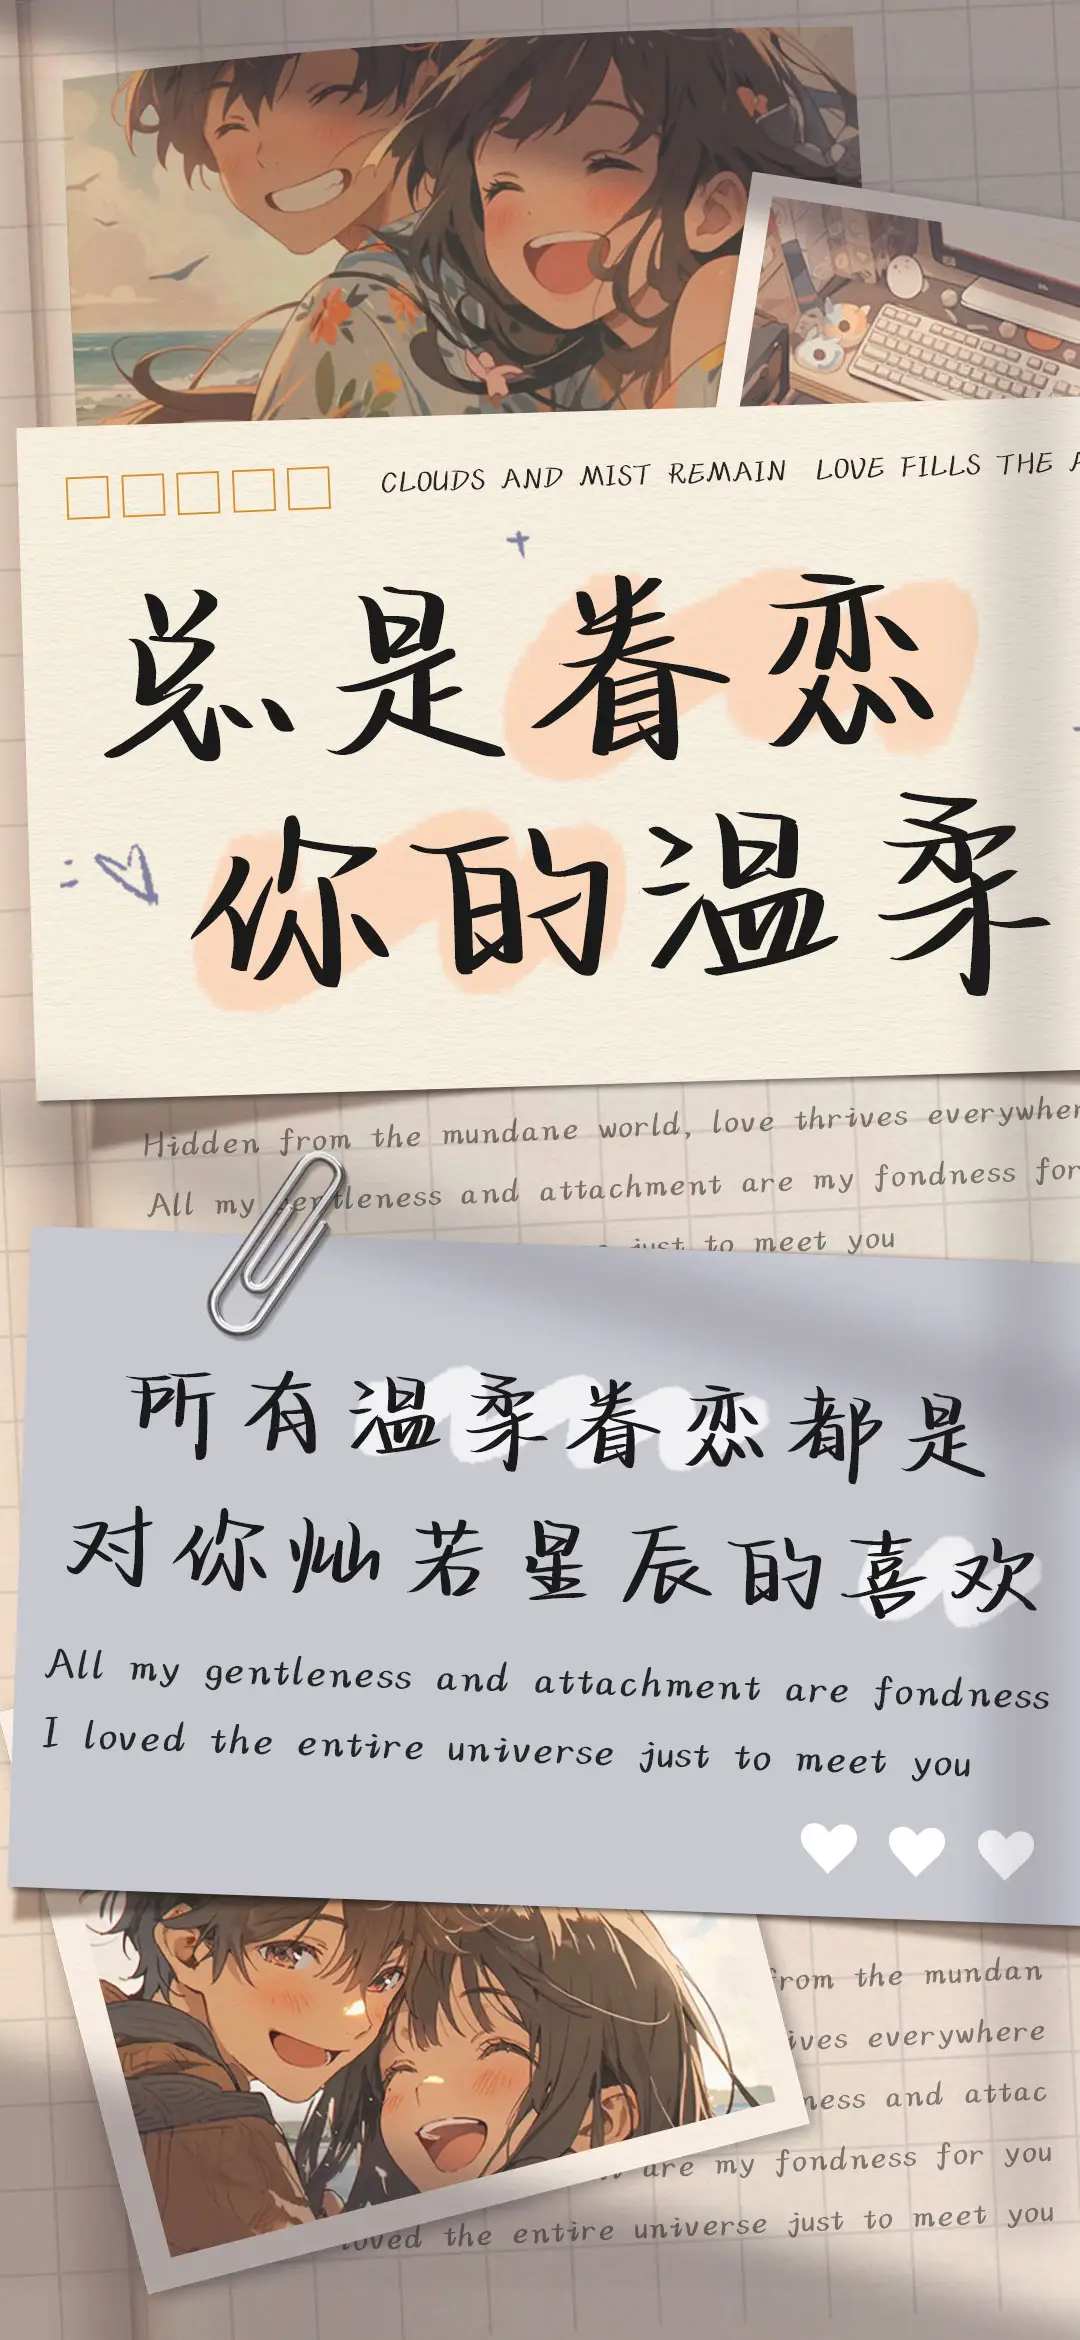 CLOUDS AND MIST REMAIN LOVE FILLS THE
总是眷恋
你的温柔
Hidden from the mundane world, love thrives everywher
All my gentleness and attachment are my fondness for
just to meet you
所有温柔眷恋都是
对你灿若星辰的喜欢
All my gentleness and attachment are fondness
I loved the entire universe just to meet you
from the mundan
ives everywhere
ness and attac
are my fondness for you
loved the entire universe just to meet you